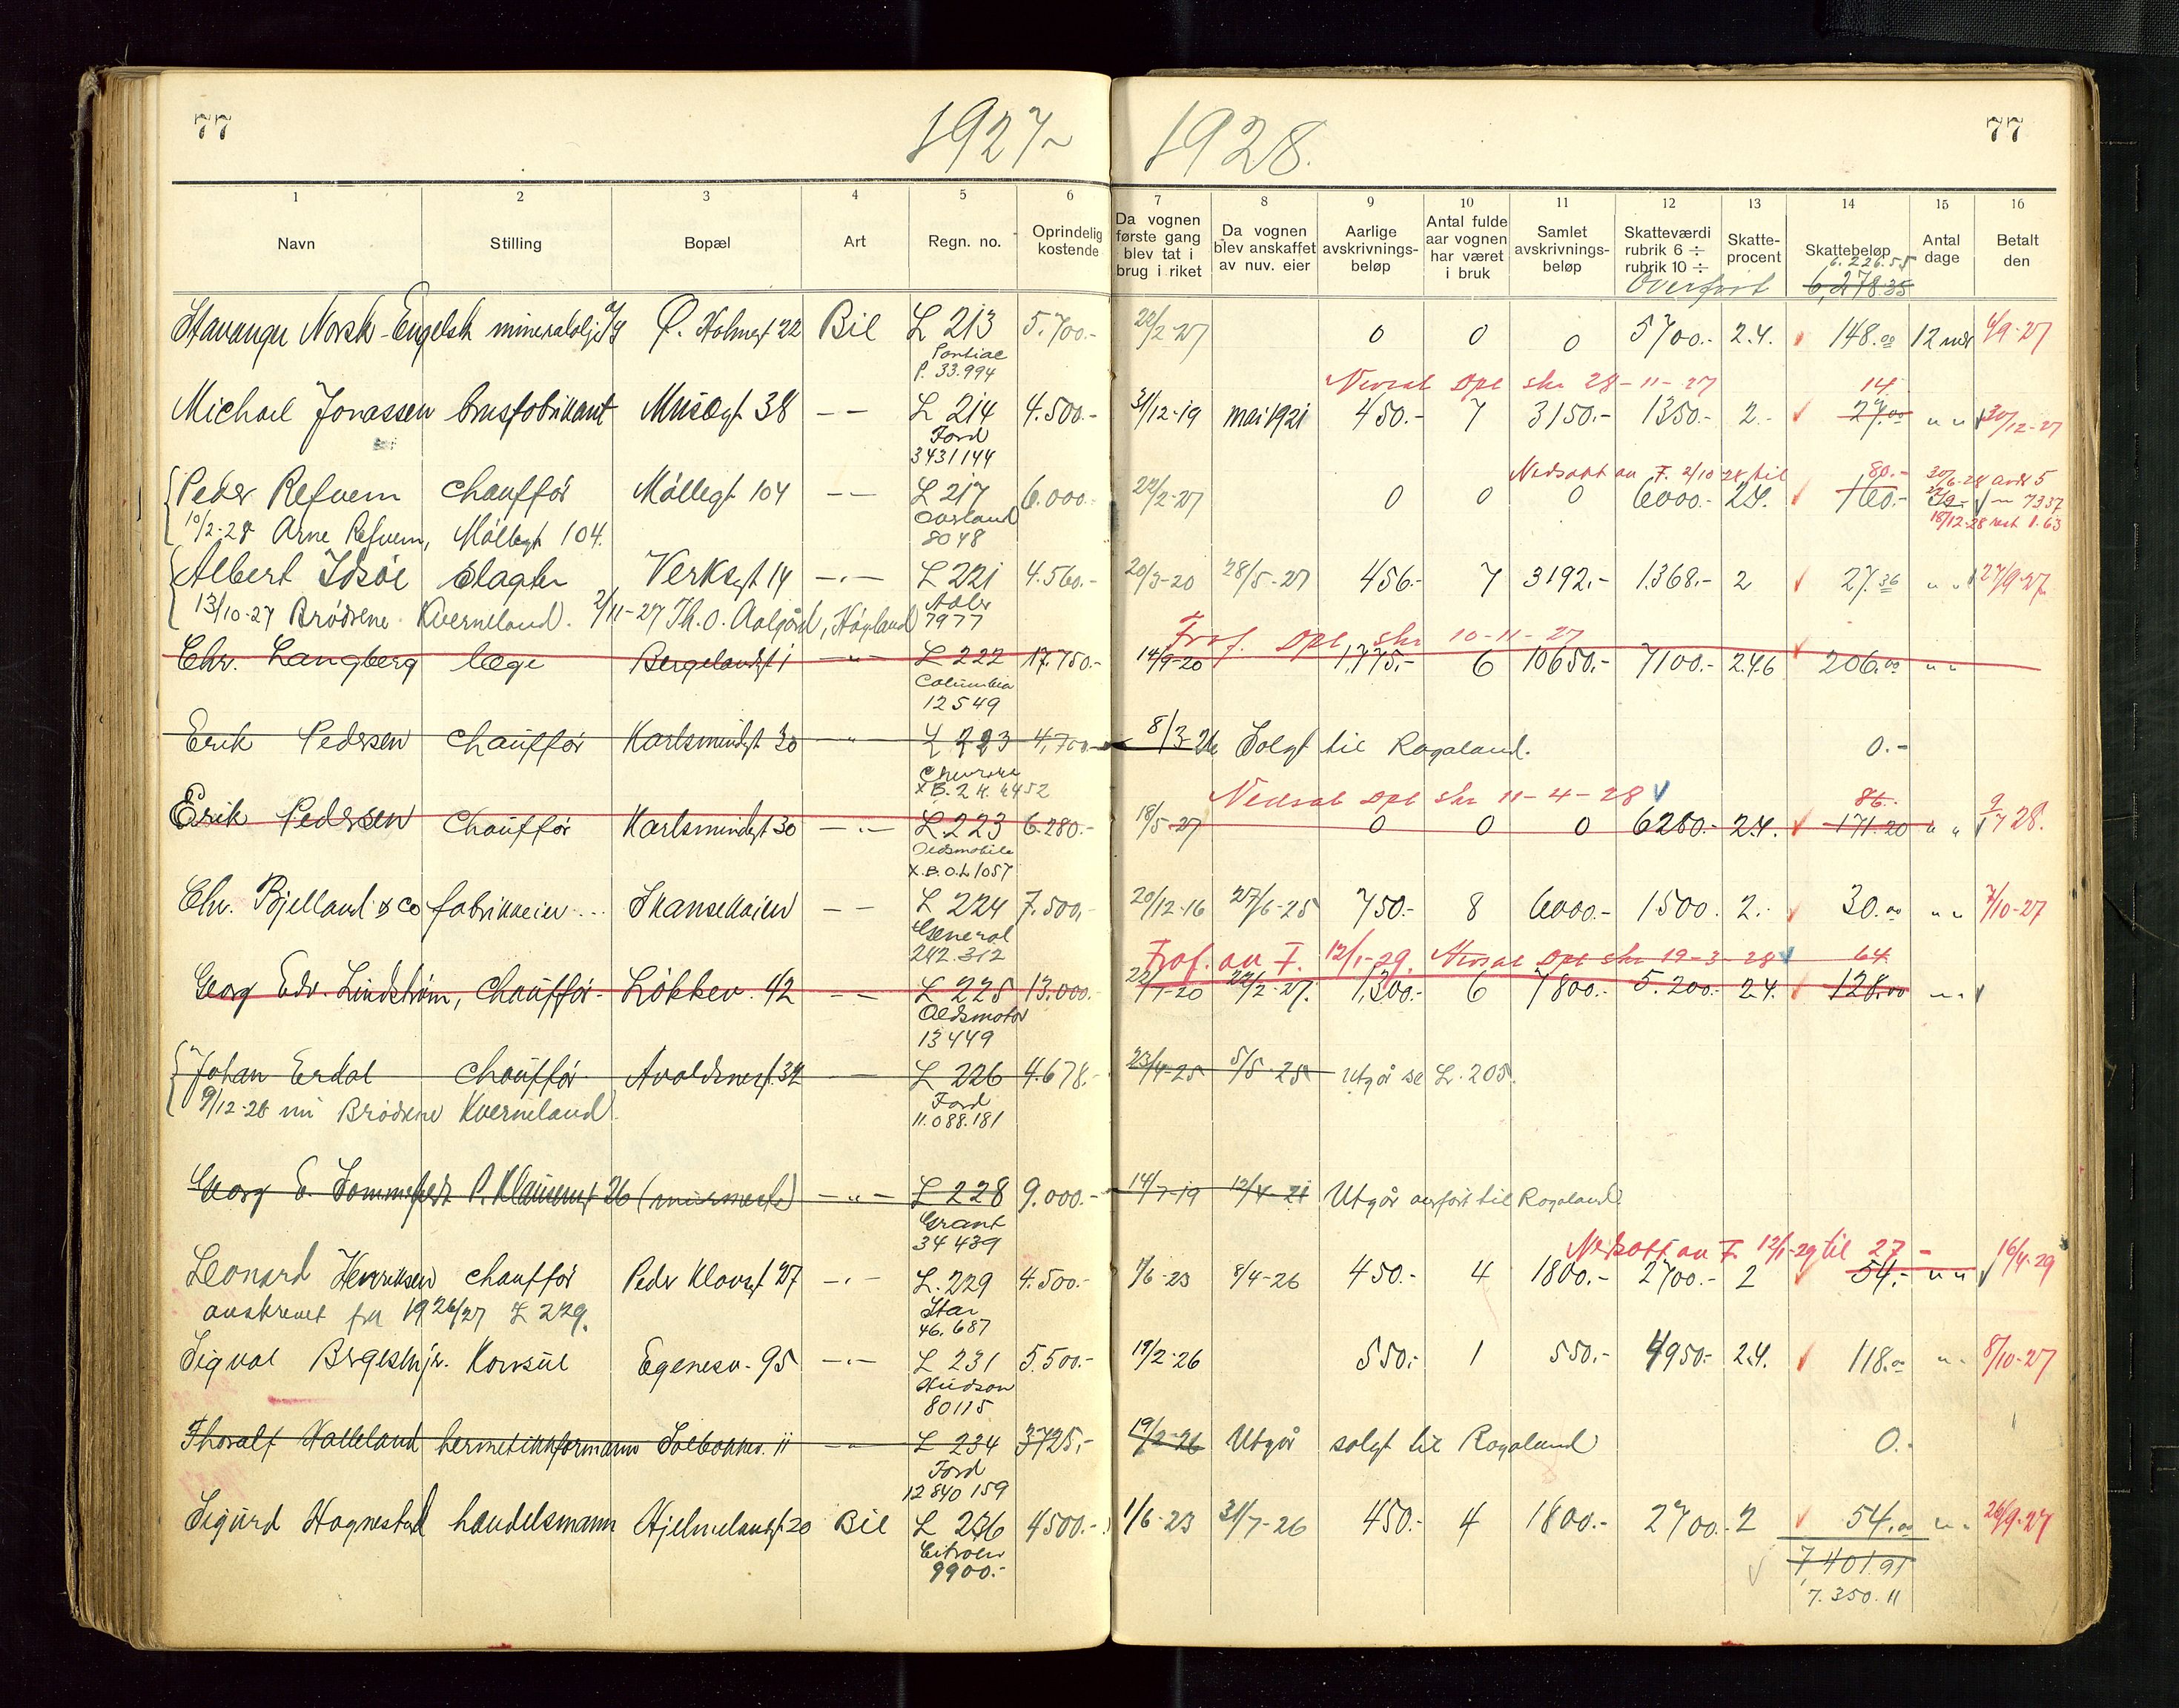 77 1927- 1928. 77
1 2 3 4 5 6 7 8 9 10 11 12 13 14 15 16
Navn Stilling Bopæl Art Regn. no. Oprindelig kostende Da vognen første gang blev tat i brug i riket Da vognen blev anskaffet av nuv. eier Aarlige avskrivnings-beløp Antal fulde aar vognen har været i bruk Samlet avskrivnings-beløp Skatteværdi rubrik 6 ÷ rubrik 10 ÷ Skatte-procent Skattebeløp Antal dage Betalt den
6.226.55
Overført 6,278.35
Stavanger Norsk-Engelsk mineralolje A/S Ø. Holmegt 22 Bil L 213 5.700.- 22/2-27 0 0 0 5700.- 2.4. 148.00 12 mdr 6/9-27
Pontiac
P. 33.994
Nedsat Dpt skr 28-11-27 14
Michael Jonassen brusfabrikant Musægt 38 -"- L 214 4.500.- 31/12-19 mai 1921 450.- 7 3150.- 1350.- 2.- 27.00 " " 30/12-27
Ford
3431144
Nedsatt av F. 2/10 28 til 80.- 30/6-28 avdr 5
Peder Refvem chauffør Møllegt 104 -"- L 217 6.000.- 22/2-27 0 0 0 6000.- 2.4. 160.- 73.37
10/2-28 Arne Refvem, Møllegt 104. Overland 18/12-28 rest 1.63
8048
Albert Idsøe slagter Verksgt 14 -"- L 221 4.560.- 20/3-20 28/5-27 456.- 7 3192.- 1368.- 2 27.36 " " 27/9-27
13/10-27 Brødrene Kverneland. 2/11-27 Th. O. Aalgård, Høyland Adler 7977
Fraf. Dpt. skr 10-11-27
Chr. Langberg læge Bergelandsgt 1 -"- L 222 17.750.- 14/9-20 1,775.- 6 10650.- 7100.- 2.4.6 206.00 " "
Columbia
12549
Erik Pedersen chauffør Karlsmindegt 30 -"- L 223 4,700.- 8/3-26 Solgt til Rogaland. 0.-
X B. 2 H. 4452
Nedsat Dpt skr 11-4-28 86.-
Erik Pedersen chauffør Karlsmindegt 30 -"- L 223 6.280.- 18/5-27 0 0 0 6280.- 2.4. 171.20 " " 2/7 28.
Oldsmobile
X.B.O.L 1057
Chr. Bjelland & Co fabrikkeier Skansekaien -"- L 224 7.500,- 20/12-16 27/6-25 750.- 8 6000.- 1500. 2.- 30.00 " " 7/10-27
General
242.312
Fraf. av F. 12/1-29. Nedsat Dpt skr 19-3-28 64
Georg Edv. Lindstrøm, chauffør- Løkkev. 42 -"- L 225 13.000.- 22/1-20 22/2-27. 1,300.- 6 7800.- 5.200.- 2.4. 128.00 " "
Oldsmotor
13449
Johan Erdal chauffør Avaldsnesgt. 32 -"- L 226 4.678.- 23/4-25 5/5-25 Utgår se L. 205.
9/12-26 nu Brødrene Kverneland. Ford
11.088.181
Georg E. Sommerfeldt P. Klausensgt 26 (murmester) -"- L 228 9.000.- 14/7-19 12/4-21 Utgår overført til Rogaland.
Grant
34439
Nedsatt av F. 12/1-29 til 27-
Leonard Henriksen chauffør Peder Klowsgt 27 -"- L. 229 4.500.- 7/6-23 8/4-26 450.- 4 1800.- 2700.- 2 54.- " " 16/4-29
avskrevet fra 1926/27 L 229. Star
46.687
Sigval Bergesen jr. Konsul Egenesv. 95 -"- L 231 5.500.- 19/2-26 550.- 1 550.- 4950.- 2.4. 118.00 " " 8/10-27
Hudson
80115
Thoralf Halleland hermetikkformann Solbakkev. 11 -"- L 234 3725,- 19/2-26 Utgår solgt til Rogaland 0.-
Ford
12840159
Sigurd Hognestad handelsmann Hjelmelandsgt 20 Bil L 236 4500.- 1/6-23 31/7-26 450.- 4 1800.- 2700.- 2 54.00 " " 26/9-27
Citroen
9900.-
7,401.91
7.350.11